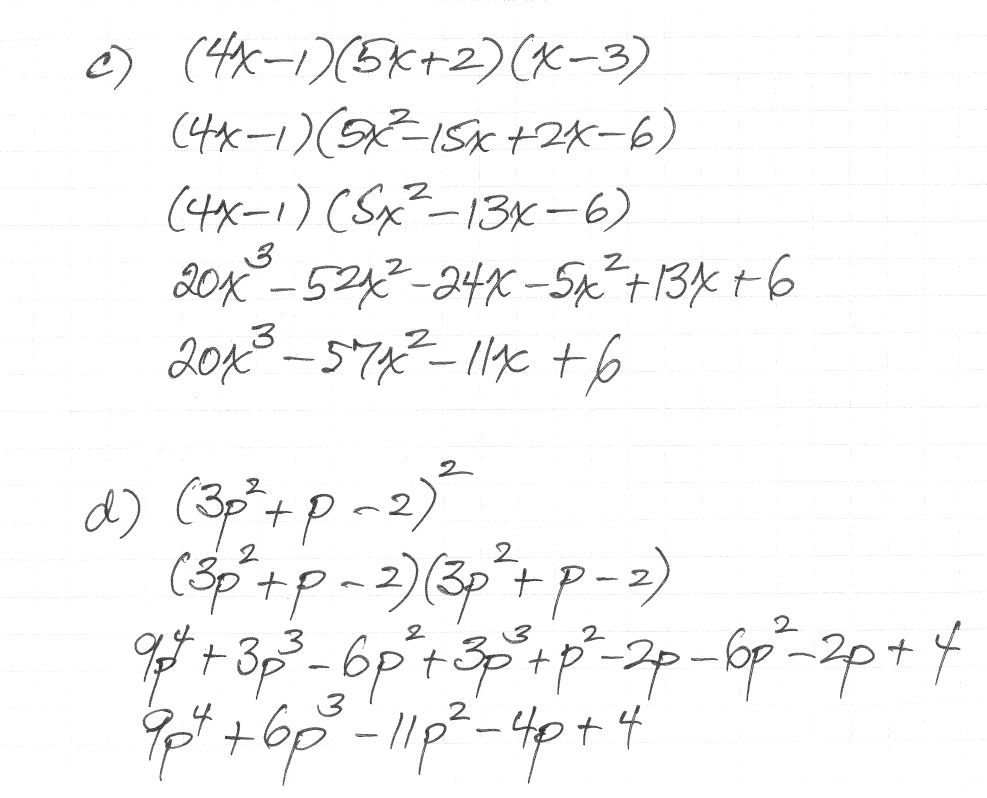 c) (4x-1)(5x+2)(x-3)
(4x-1)(5x²-15x+2x-6)
(4x-1)(5x²-13x-6)
20x³-52x²-24x-5x²+13x+6
20x³-57x²-11x+6
d) (3p²+p-2)²
(3p²+p-2)(3p²+p-2)
9p⁴+3p³-6p²+3p³+p²-2p-6p²-2p+4
9p⁴+6p³-11p²-4p+4